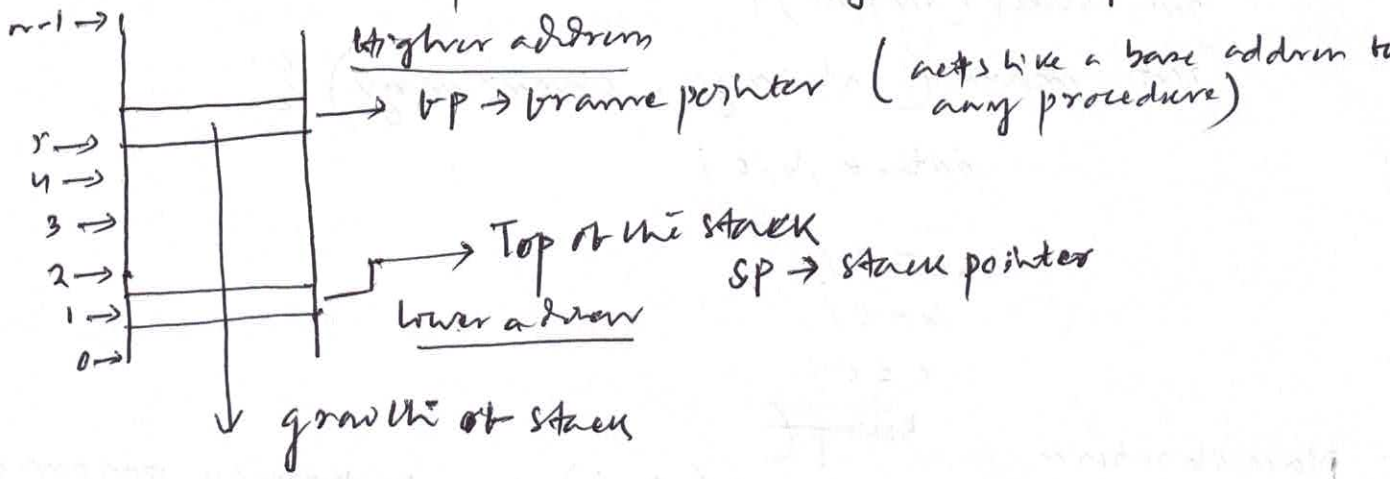 n-1 →
Higher address
fp → frame pointer ( acts like a base address to
any procedure)
5 →
4 →
3 →
Top of the stack
2 →
sp → stack pointer
1 →
lower address
0 →
growth of stack